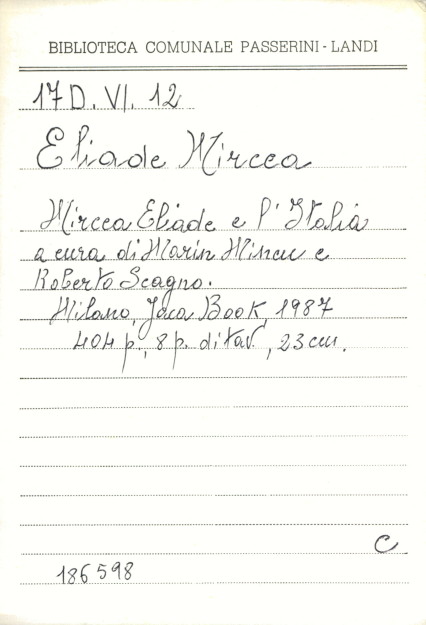 BIBLIOTECA COMUNALE PASSERINI-LANDI
17D. VI. 12
Eliade Mircea
Mircea Eliade e l'Italia
a cura di Marin Mincu e
Roberto Scagno.
Milano, Jaca Book, 1987
404 p., 8 p. di tav., 23 cm.
C
186598